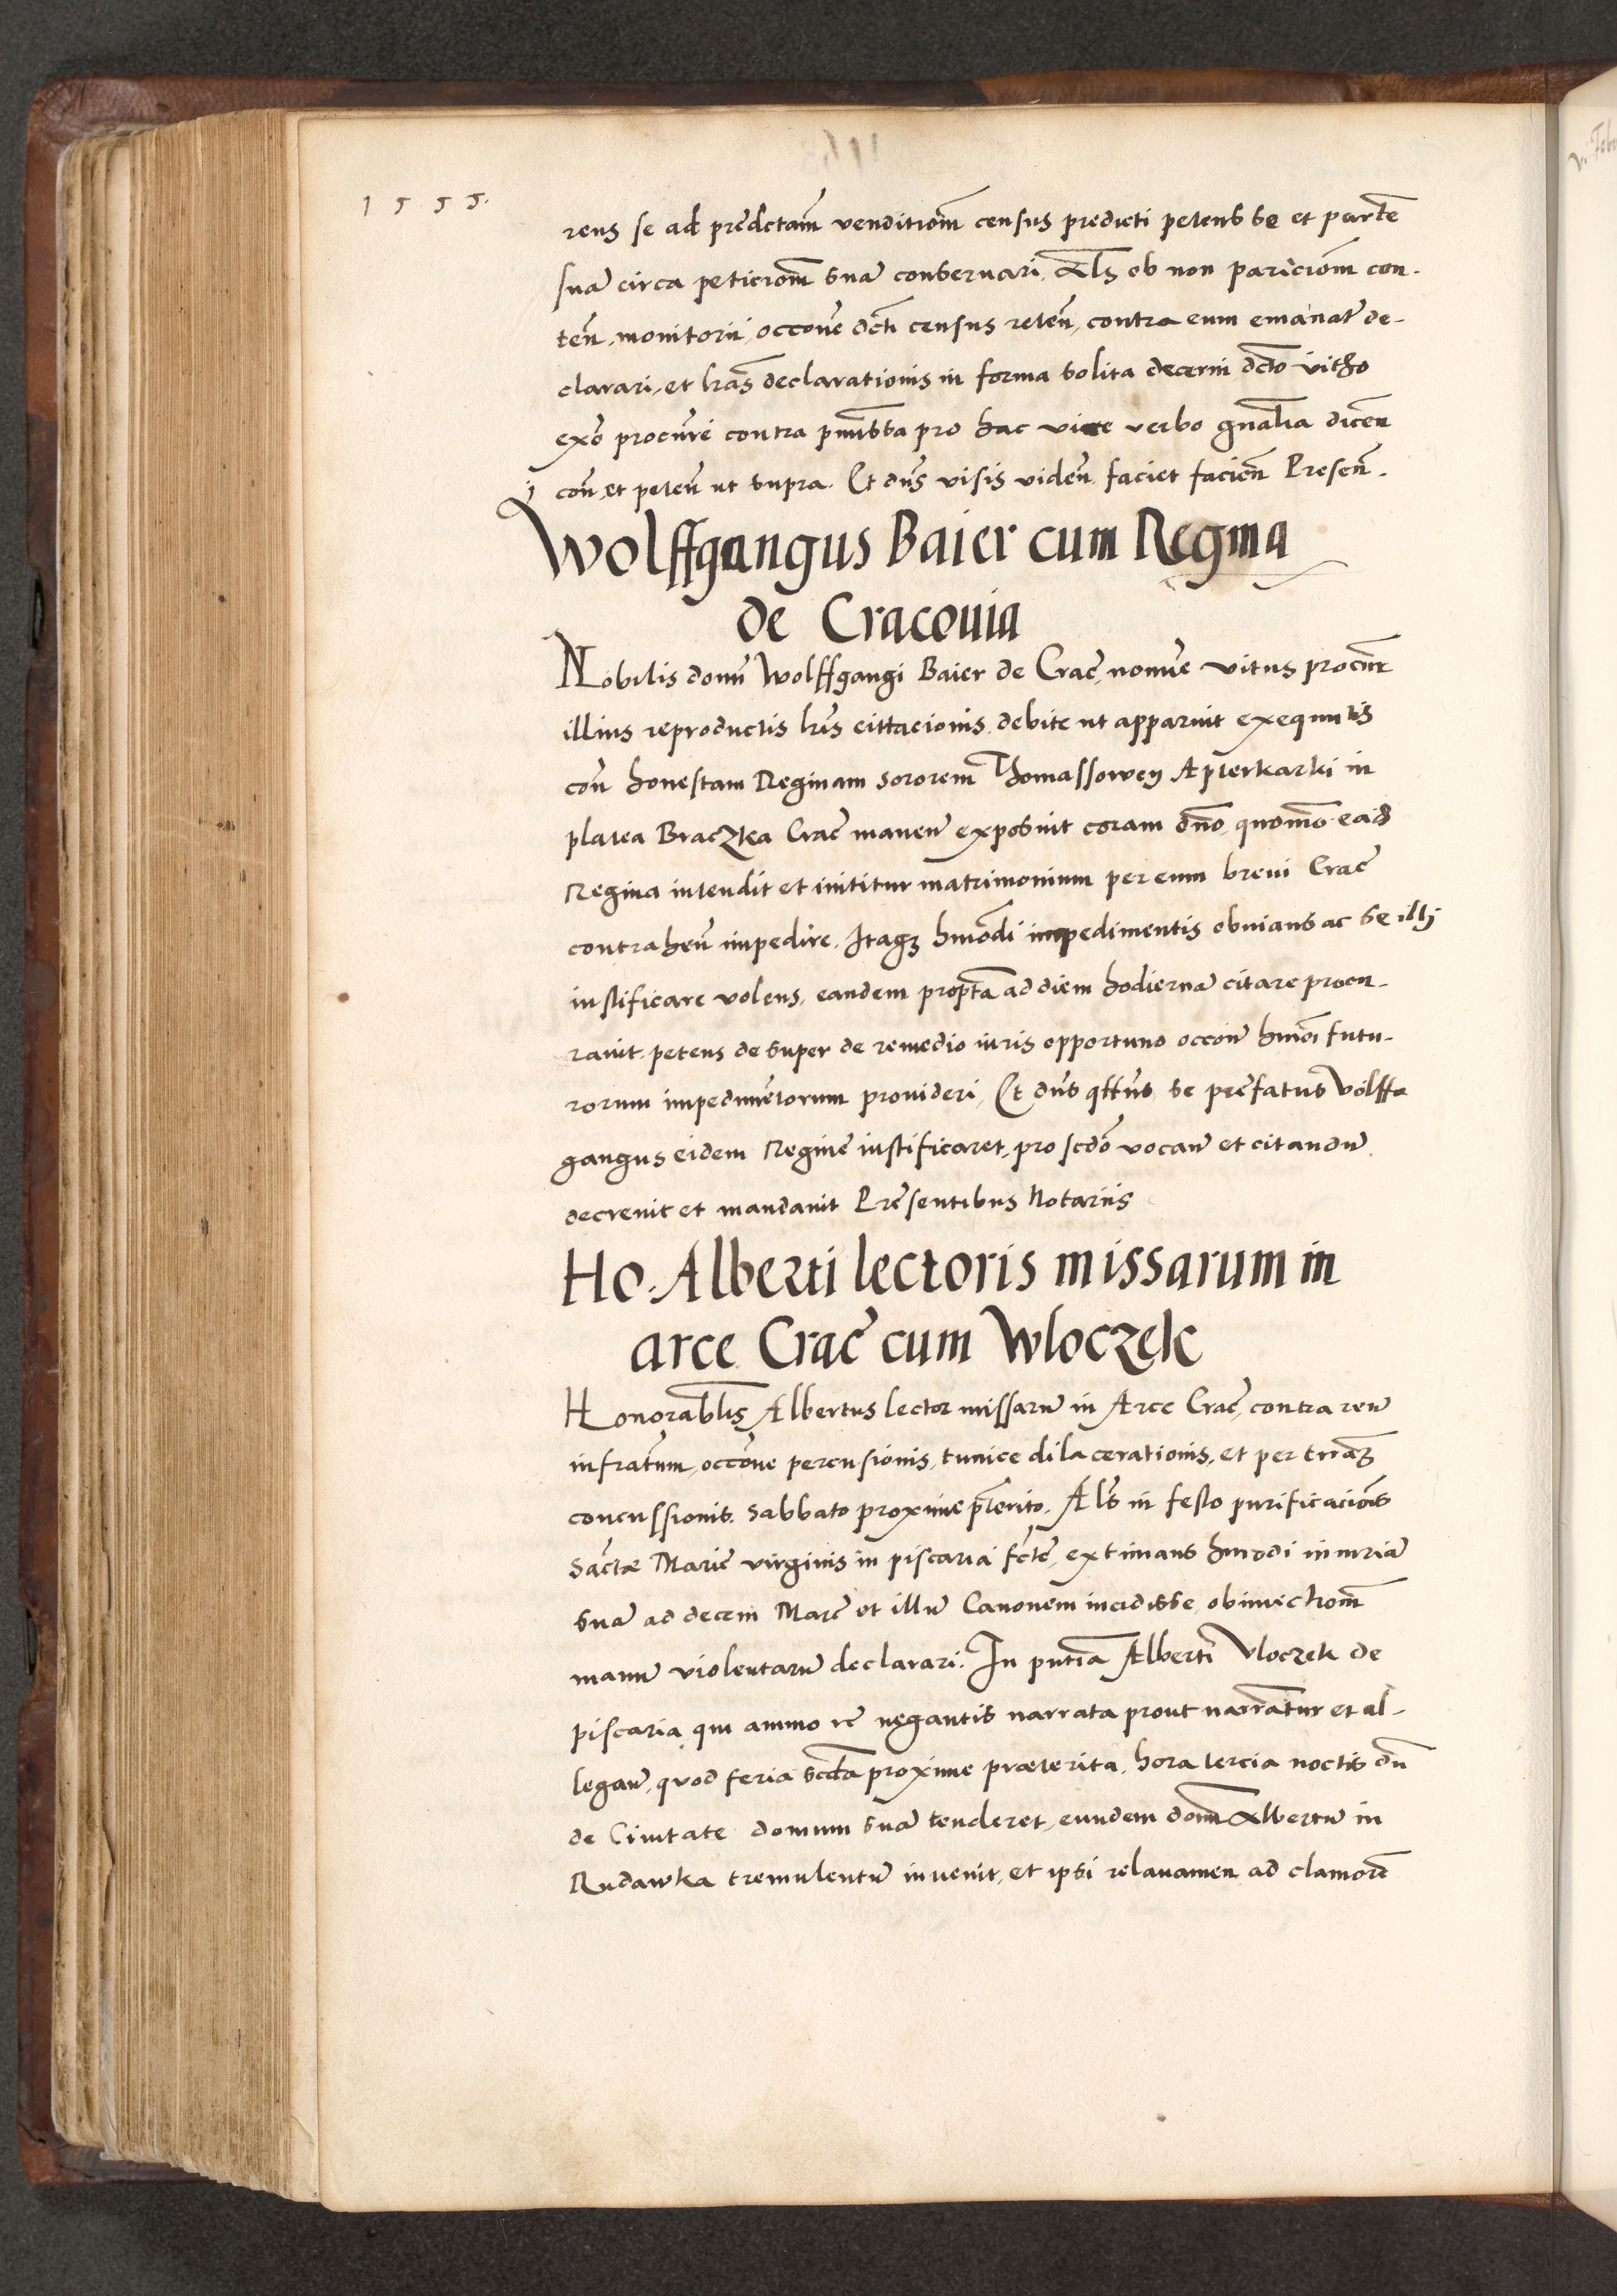 1555.
rens se ad predctam̄ venditiom̄ census predicti petens se et partē
suā circa peticiom̄ suā conseruari. Als̄ ob non pariciom̄ con-
ten̄. monitorii occone dcti census reten̄, contra eum emanat̄ de-
clarari, et lras declarationis in forma solita decerni dcto vitho
exo procurē contra pmissa pro hac vice verbo gnalia dicen
con̄ et peten̄ ut supra. Et dns visis viden̄ faciet facien̄ Presen̄.
Wolffgangus Baier cum Regina
de Cracouia
Nobilis domi Wolffgangi Baier de Crac̄ nomine vitus procur̄
illius reproductis lris cittacionis debite ut apparuit exequutis
con̄ honestam Reginam sororem Thomassowey Apterkarki in
platea Braczka Crac̄ manen̄ exposuit coram dno, quomo eadē
Regina intendit et inititur matrimonium per eum breui Crac̄
contrahen̄ impedire. Itaqȝ hmodi impedimentis obuians ac se illi
iustificare volens, eandem propta ad diem hodiernā citare procu-
rauit petens desuper de remedio iuris opportuno occone hmoi futu-
rorum impedimētorum prouideri, Et dns qttus se prefatus Volff-
gangus eidem Reginē iustificaret, pro scdo vocan̄ et citandū
decreuit et mandauit Presentibus Notariis
Ho. Alberti lectoris missarum in
arce Crac̄ cum Wloczek
Honorablis Albertus lector missarū in Arce Crac̄, contra reū
infratum, occone percusionis, tunice dilacerationis, et per terrā
concussionis. Sabbato proxime pterito. Als̄ in festo purificacionis
Sanctæ Marie virginis in piscaria fctē, extimans hmodi iniuriā
suā ad decem Marc̄ et illū Canonem incidisse, ob iniectiom̄
manū violentarū declarari. In pntia Alberti Vloczek de
piscaria, qui animo re negantis narrata prout narrantur et al-
legan̄, quod feria scda proxime præterita, hora tercia noctis dū
de Ciuitate domum suā tenderet, eundem dom Albertū in
Rudawka tremulentū inuenit, et ipsi relauamen ad clamorē